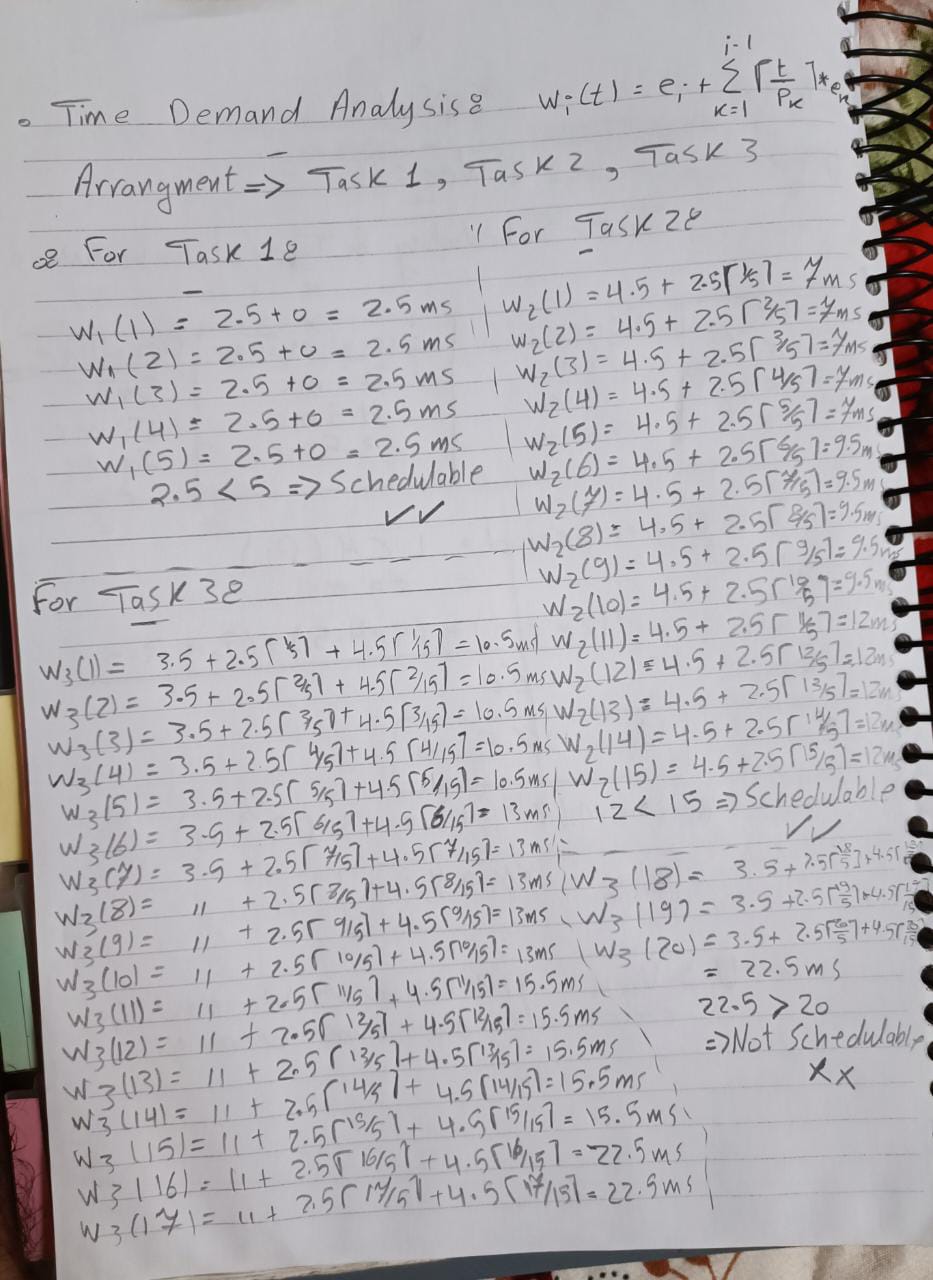 • Time Demand Analysis: wᵢ(t) = eᵢ + Σ_{k=1}^{i-1} ⌈t/Pₖ⌉*eₖ
Arrangment => Task 1, Task 2, Task 3
For Task 1:
W₁(1) = 2.5+0 = 2.5 ms
W₁(2) = 2.5+0 = 2.5 ms
W₁(3) = 2.5+0 = 2.5 ms
W₁(4) = 2.5+0 = 2.5 ms
W₁(5) = 2.5+0 = 2.5 ms
2.5 < 5 => Schedulable
✓✓
" For Task 2:
W₂(1) = 4.5 + 2.5⌈1/5⌉ = 7ms
W₂(2) = 4.5 + 2.5⌈2/5⌉ = 7ms
W₂(3) = 4.5 + 2.5⌈3/5⌉ = 7ms
W₂(4) = 4.5 + 2.5⌈4/5⌉ = 7ms
W₂(5) = 4.5 + 2.5⌈5/5⌉ = 7ms
W₂(6) = 4.5 + 2.5⌈6/5⌉ = 9.5ms
W₂(7) = 4.5 + 2.5⌈7/5⌉ = 9.5ms
W₂(8) = 4.5 + 2.5⌈8/5⌉ = 9.5ms
W₂(9) = 4.5 + 2.5⌈9/5⌉ = 9.5ms
W₂(10) = 4.5 + 2.5⌈10/5⌉ = 9.5ms
W₂(11) = 4.5 + 2.5⌈11/5⌉ = 12ms
W₂(12) = 4.5 + 2.5⌈12/5⌉ = 12ms
W₂(13) = 4.5 + 2.5⌈13/5⌉ = 12ms
W₂(14) = 4.5 + 2.5⌈14/5⌉ = 12ms
W₂(15) = 4.5 + 2.5⌈15/5⌉ = 12ms
12 < 15 => Schedulable
✓✓
For Task 3:
W₃(1) = 3.5 + 2.5⌈1/5⌉ + 4.5⌈1/15⌉ = 10.5ms
W₃(2) = 3.5 + 2.5⌈2/5⌉ + 4.5⌈2/15⌉ = 10.5ms
W₃(3) = 3.5 + 2.5⌈3/5⌉ + 4.5⌈3/15⌉ = 10.5ms
W₃(4) = 3.5 + 2.5⌈4/5⌉ + 4.5⌈4/15⌉ = 10.5ms
W₃(5) = 3.5 + 2.5⌈5/5⌉ + 4.5⌈5/15⌉ = 10.5ms
W₃(6) = 3.5 + 2.5⌈6/5⌉ + 4.5⌈6/15⌉ = 13ms
W₃(7) = 3.5 + 2.5⌈7/5⌉ + 4.5⌈7/15⌉ = 13ms
W₃(8) = " + 2.5⌈8/5⌉ + 4.5⌈8/15⌉ = 13ms
W₃(9) = " + 2.5⌈9/5⌉ + 4.5⌈9/15⌉ = 13ms
W₃(10) = " + 2.5⌈10/5⌉ + 4.5⌈10/15⌉ = 13ms
W₃(11) = " + 2.5⌈11/5⌉ + 4.5⌈11/15⌉ = 15.5ms
W₃(12) = " + 2.5⌈12/5⌉ + 4.5⌈12/15⌉ = 15.5ms
W₃(13) = " + 2.5⌈13/5⌉ + 4.5⌈13/15⌉ = 15.5ms
W₃(14) = " + 2.5⌈14/5⌉ + 4.5⌈14/15⌉ = 15.5ms
W₃(15) = " + 2.5⌈15/5⌉ + 4.5⌈15/15⌉ = 15.5ms
W₃(16) = " + 2.5⌈16/5⌉ + 4.5⌈16/15⌉ = 22.5ms
W₃(17) = " + 2.5⌈17/5⌉ + 4.5⌈17/15⌉ = 22.5ms
W₃(18) = 3.5 + 2.5⌈18/5⌉ + 4.5⌈18/15
W₃(19) = 3.5 + 2.5⌈19/5⌉ + 4.5⌈19/15
W₃(20) = 3.5 + 2.5⌈20/5⌉ + 4.5⌈20/15
= 22.5ms
22.5 > 20
=> Not Schedulable
XX